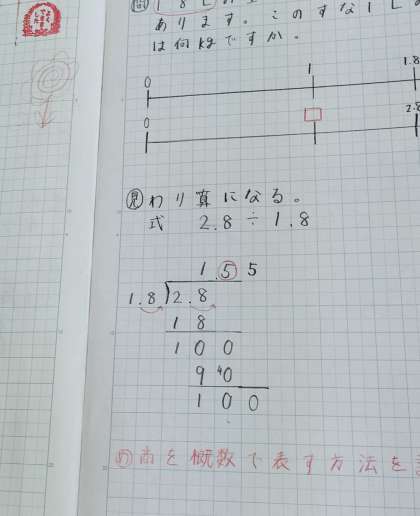 問 1.8L
あります。このすな1L
は何kgですか。
0 1 1.8
0 □ 2.8
見 わり算になる。
式 2.8÷1.8
1.55
1.8)2.8
18
100
90
100
め 商を概数で表す方法を